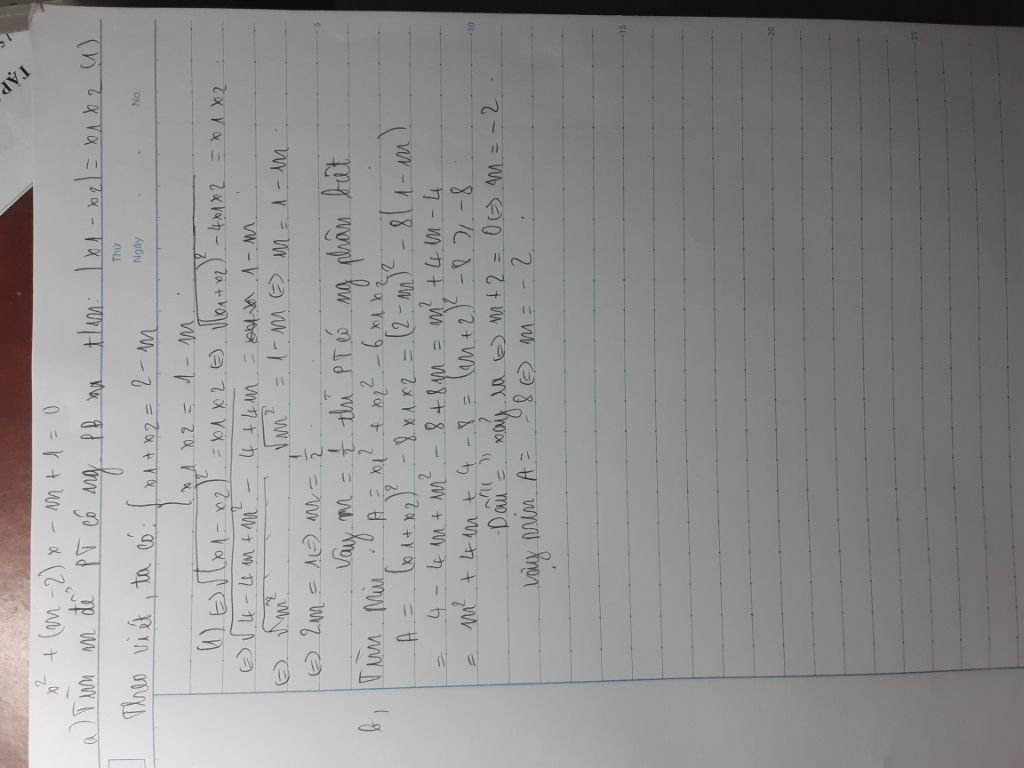 x² + (m-2)x - m + 1 = 0
a) Tìm m để PT có ng PB m thm: |x1 - x2| = x1x2 (1)
Thứ
Ngày
No.
Theo viét, ta có: { x1 + x2 = 2 - m
x1x2 = 1 - m
(1) (=) √(x1 - x2)² = x1x2 (=) √(x1+x2)² - 4x1x2 = x1x2
(=) √4 - 4m + m² - 4 + 4m = 1 - m
(=) √m² √m² = 1 - m (=) m = 1 - m
(=) 2m = 1 (=) m = 1/2
Vậy m = 1/2 thì PT có ng phân biệt
b, Tìm min: A = x1² + x2² - 6x1x2
A = (x1+x2)² - 8x1x2 = (2-m)² - 8(1-m)
= 4 - 4m + m² - 8 + 8m = m² + 4m - 4
= m² + 4m + 4 - 8 = (m+2)² - 8 ≥ -8
Dấu "=" xảy ra (=) m+2 = 0 (=) m = -2
vậy min A = -8 (=) m = -2
5
10
15
20
25
TẬP